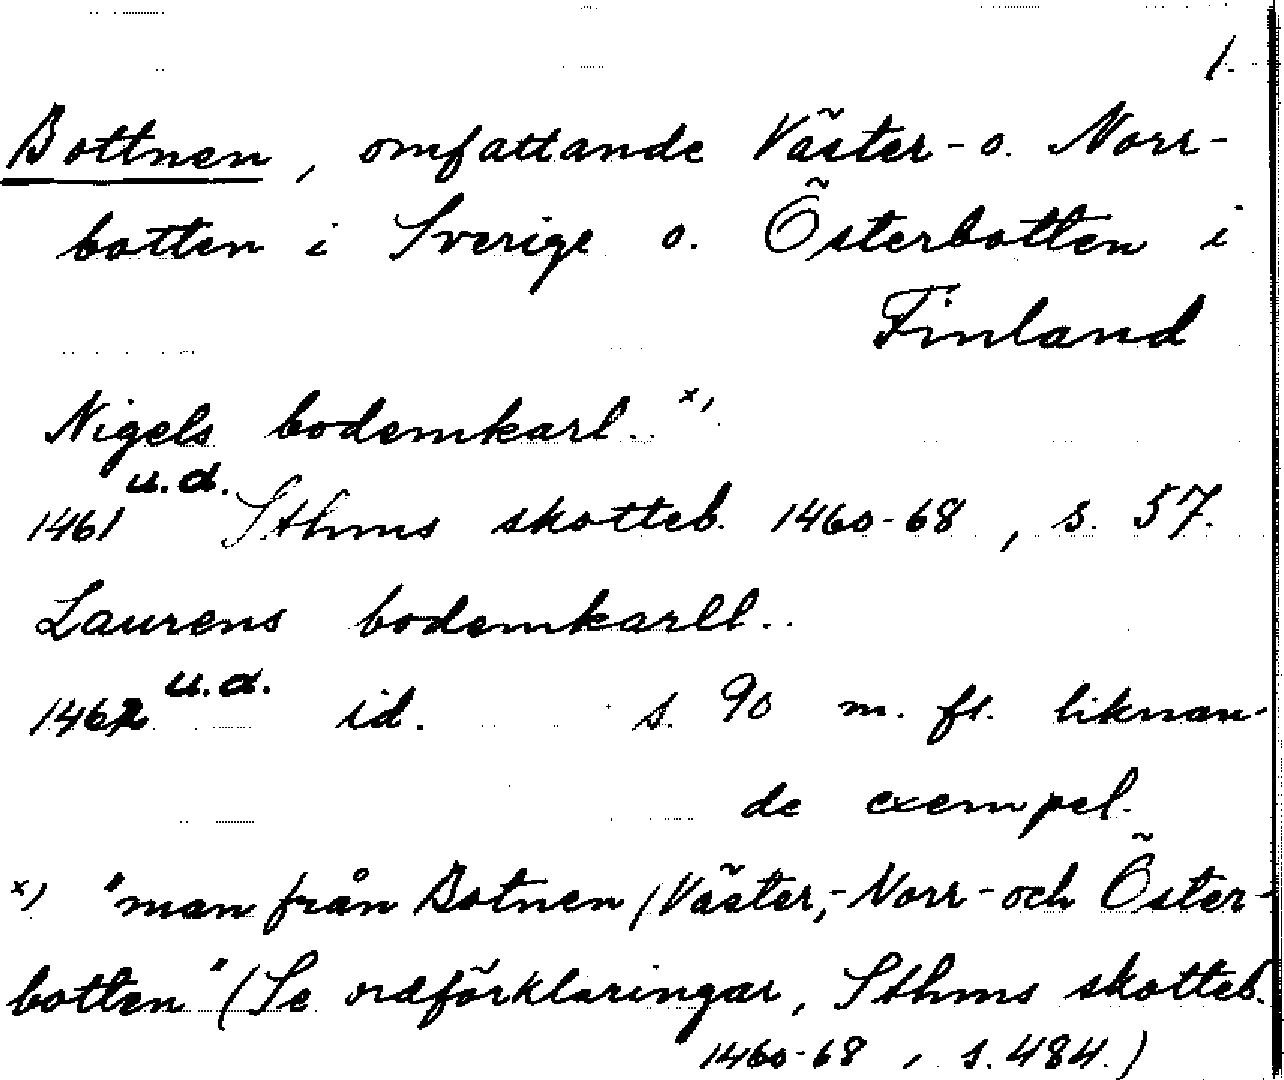 1.
Bottnen, omfattande Väster- o. Norr-
botten i Sverige o. Österbotten i
Finland
Nigels bodemkarl.. x)
1461 u.d. Sthms skotteb. 1460-68, s. 57.
Laurens bodemkarll..
1462 u.d. id. s. 90 m. fl. liknan-
de exempel.
x) "man från Botnen (Väster,- Norr- och Öster-
botten" (Se ordförklaringar, Sthms skotteb.
1460-68, s. 484.)